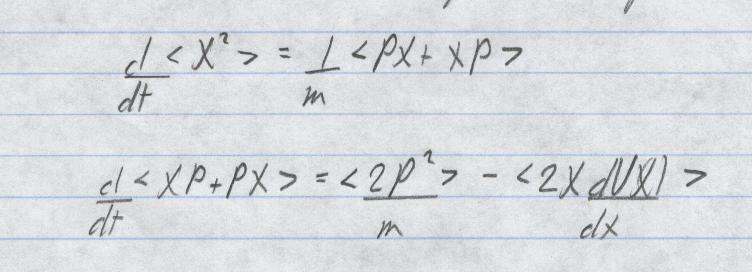 d/dt <X²> = 1/m <PX + XP>
d/dt <XP + PX> = <2P²/m> - <2X dV(X)/dx>